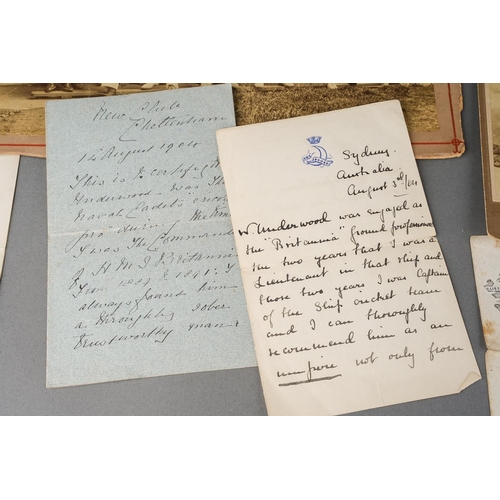 New Club
Cheltenham
12 August 1904
This is to certify
Underwood was the
Naval Cadets
pro during the time
I was the Commander
of H.M.S. Britannia
from 1889 to 1891. I
always found him
a thoroughly sober
trustworthy man
Sydney
Australia
August 3rd/04
W Underwood was engaged as
the "Britannia" ground professional
the two years that I was a
Lieutenant in that ship and
those two years I was Captain
of the Ship cricket team
and I can thoroughly
recommend him as an
umpire not only from